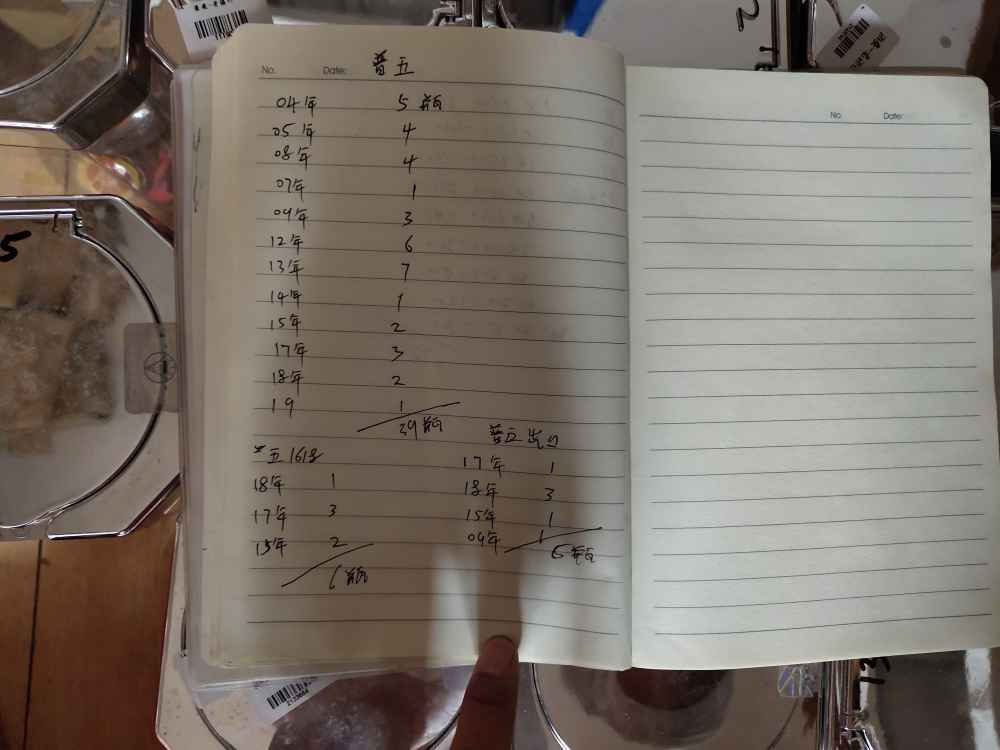 No. Date: 普五
04年 5瓶
05年 4
08年 4
07年 1
09年 3
12年 6
13年 7
14年 1
15年 2
17年 3
18年 2
19 1
39瓶
普五出口
17年 1
18年 3
15年 1
09年 1
6瓶
五1618
18年 1
17年 3
15年 2
6瓶
No. Date:
5
2